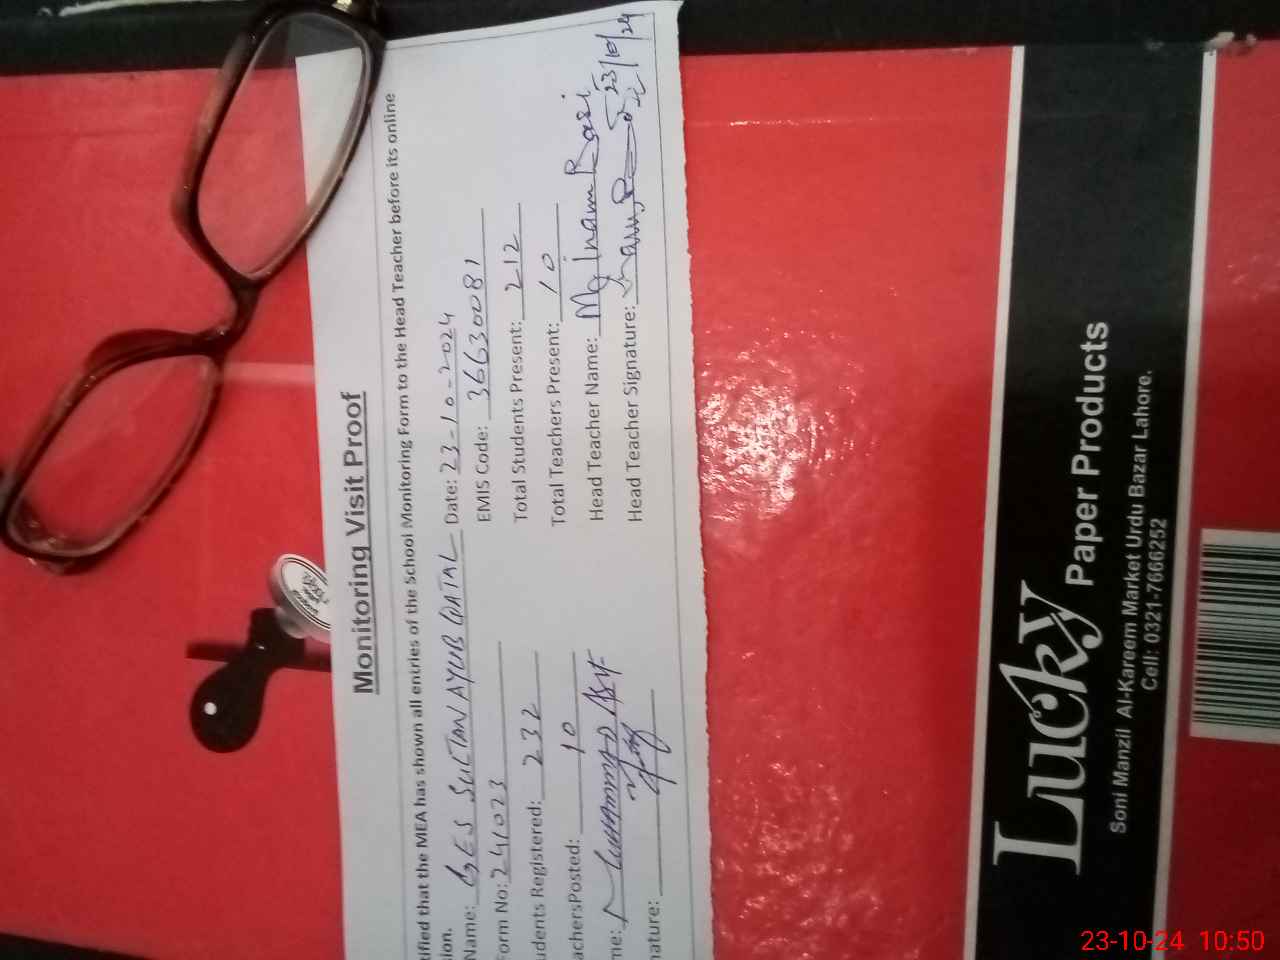 Monitoring Visit Proof
tified that the MEA has shown all entries of the School Monitoring Form to the Head Teacher before its online
ion.
Name: GES SULTAN AYUB QATAL Date: 23-10-2024
Form No: 241023 EMIS Code: 36630081
udents Registered: 232 Total Students Present: 212
achersPosted: 10 Total Teachers Present: 10
me: MUHAMMAD Head Teacher Name: Inam
nature: Head Teacher Signature: 23/10/24
Lucky Paper Products
Soni Manzil Al-Kareem Market Urdu Bazar Lahore.
Cell: 0321-7666252
23-10-24 10:50